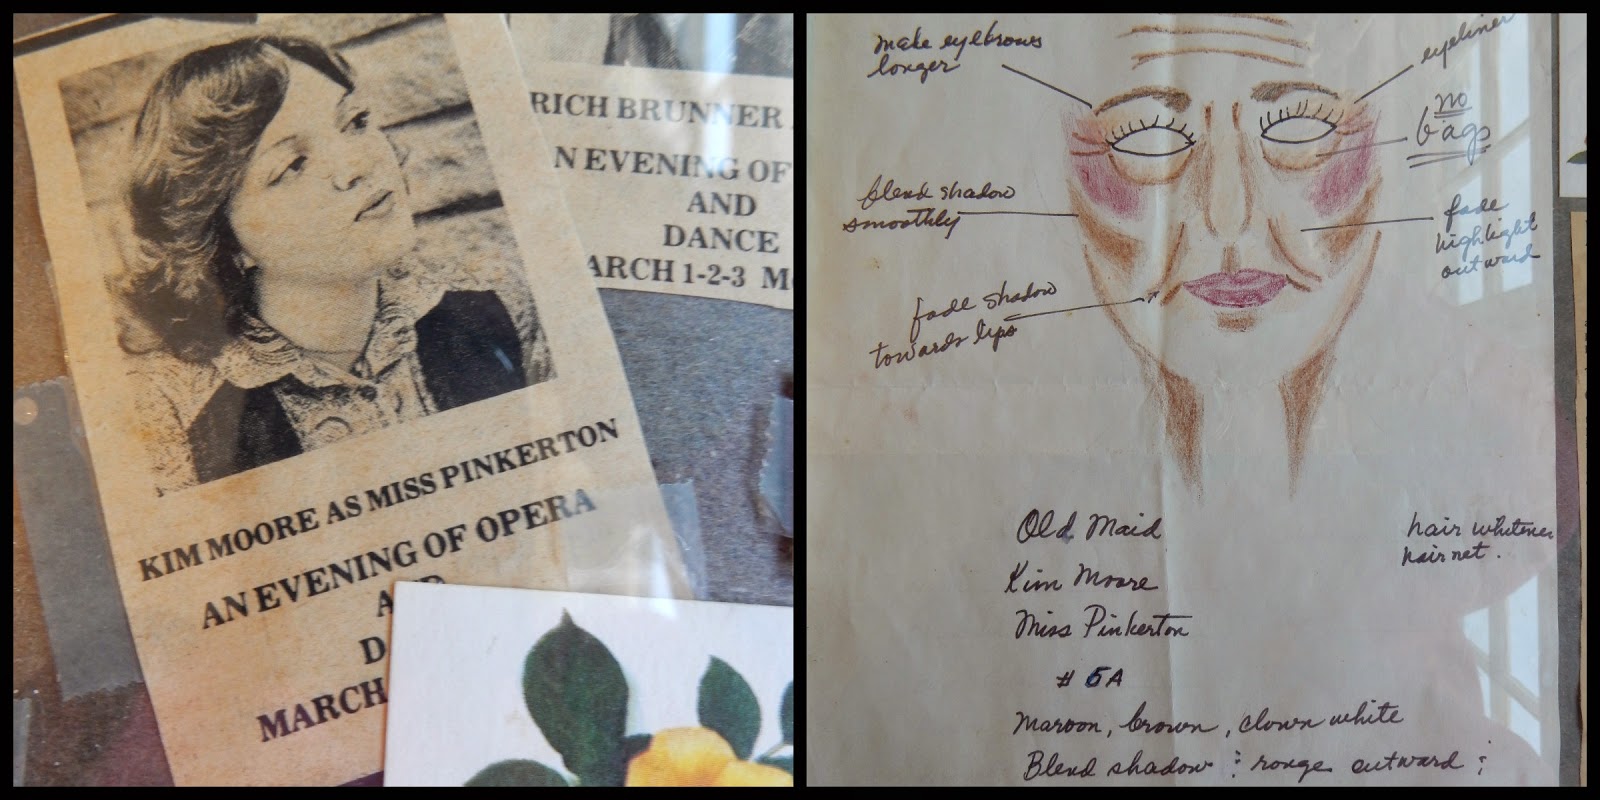 KIM MOORE AS MISS PINKERTON
AN EVENING OF OPERA
D
MARCH
RICH BRUNNER
N EVENING OF
AND
DANCE
ARCH 1-2-3 M
make eyebrows
longer
eyeliner
no
bags
blend shadow
smoothly
fade
highlight
outward
fade shadow
towards lips
Old Maid
Kim Moore
Miss Pinkerton
# 5A
hair whitener
hair net.
Maroon, brown, clown white
Blend shadow : rouge outward ;